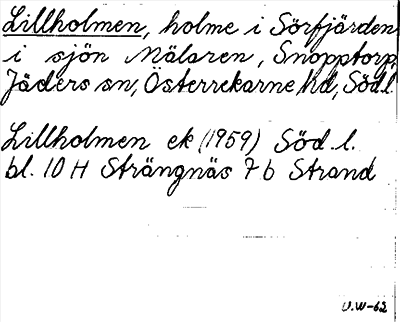 Lillholmen, holme i Sörfjärden
i sjön Mälaren, Snopptorp,
Jäders sn, Österrekarne hd, Södl.
Lillholmen ek (1959) Söd. l.
bl. 10 H Strängnäs 7 b Strand
U.W-62